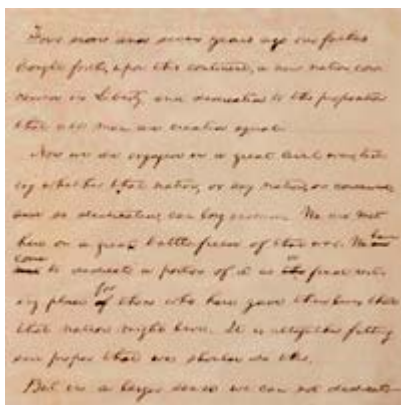 Four score and seven years ago our fathers
brought forth, upon this continent, a new nation, con
ceived in Liberty, and dedicated to the proposition
that all men are created equal.
Now we are engaged in a great civil war, test
ing whether that nation, or any nation, so conceived,
and so dedicated, can long endure. We are met
here on a great battle-field of that war. We have
come to dedicate a portion of it as the final rest
ing place for those who here gave their lives that
that nation might live. It is altogether fitting
and proper that we should do this.
But in a larger sense we can not dedicate